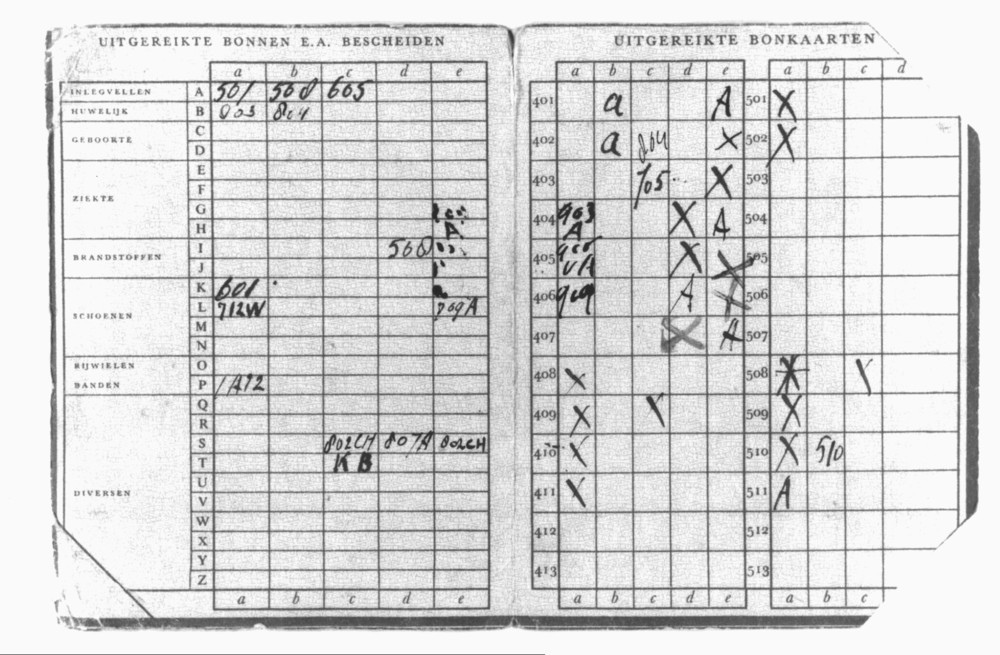 UITGEREIKTE BONNEN E.A. BESCHEIDEN
a b c d e
INLEGVELLEN A 501 508 605
HUWELIJK B 803 804
C
GEBOORTE
D
E
F
ZIEKTE
G
H A
I 508
BRANDSTOFFEN
J
K 601
L 712W 709A
SCHOENEN
M
N
RIJWIELEN O
BANDEN P 1A12
Q
R
S 802CH 807A 802CH
T K B
U
DIVERSEN
V
W
X
Y
Z
a b c d e
UITGEREIKTE BONKAARTEN
a b c d e a b c d
401 a A 501 X
402 a 804 X 502 X
403 705 X 503
404 903 A X A 504
405 X X 505
406 909 A X 506
407 X A 507
408 X 508 X X
409 X X 509 X
410 X 510 X 510
411 X 511 A
412 512
413 513
a b c d e a b c